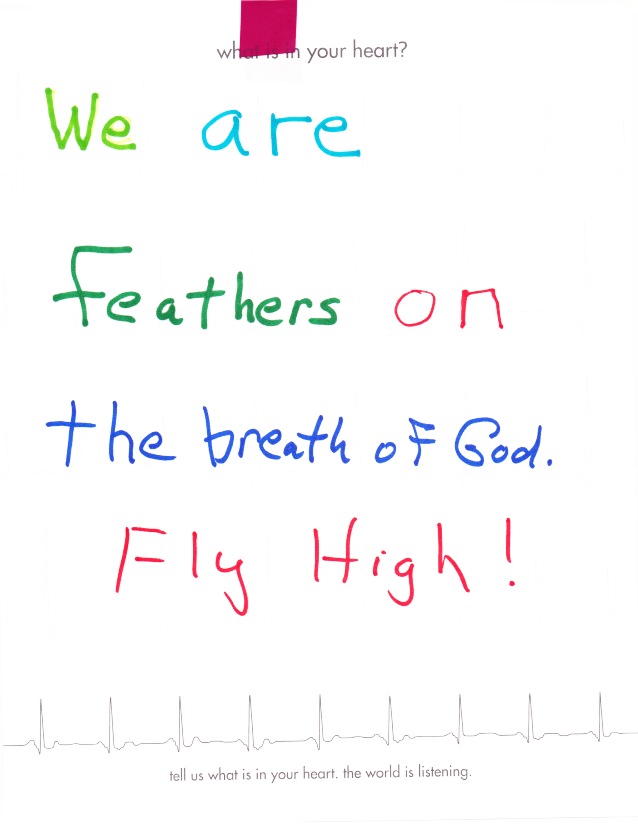 what is in your heart?
We are
Feathers on
the breath of God.
Fly High!
tell us what is in your heart. the world is listening.